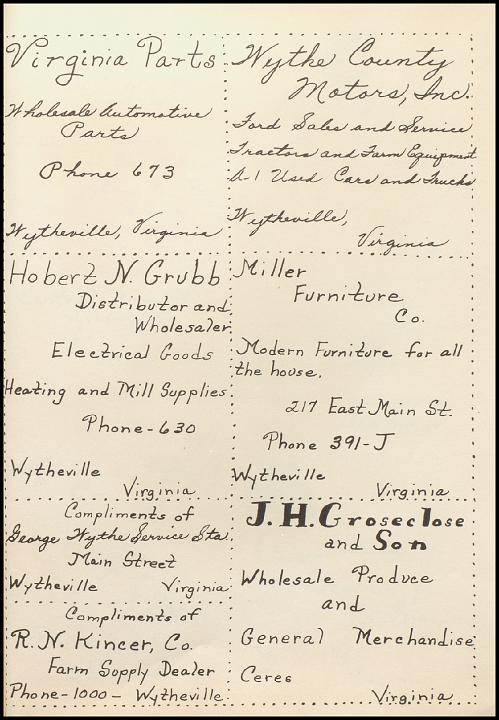 Virginia Parts
Wholesale Automotive
Parts
Phone 673
Wytheville, Virginia
Wythe County
Motors, Inc.
Ford Sales and Service
Tractors and Farm Equipment
A-1 Used Cars and Trucks
Wytheville,
Virginia
Hobert N. Grubb
Distributor and
Wholesaler
Electrical Goods
Heating and Mill Supplies
Phone-630
Wytheville
Virginia
Miller
Furniture
Co.
Modern Furniture for all
the house.
217 East Main St.
Phone 391-J
Wytheville
Virginia
Compliments of
George Wythe Service Sta.
Main Street
Wytheville Virginia
J. H. Groseclose
and Son
Wholesale Produce
and
General Merchandise
Ceres
Virginia
Compliments of
R. N. Kincer, Co.
Farm Supply Dealer
Phone-1000- Wytheville